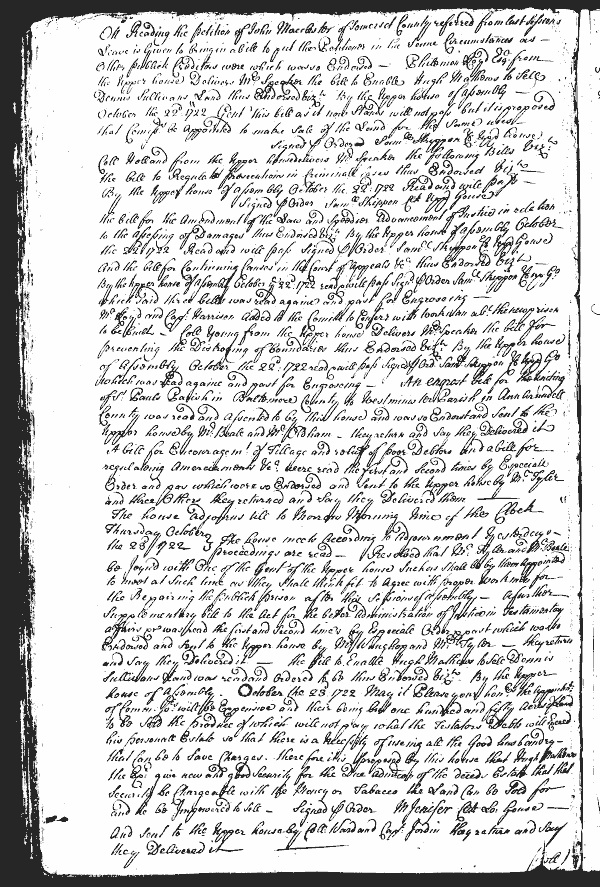 On Reading the Petition of John Macclester of Somerset County referred from last Sessions
Leave is Given to bring in a bill to put the Petitioner in the Same Circumstances as
Other Publick Creditors were which was so Endorsed — Philemon Loyd Esqr from
the Upper house Delivers Mr Speaker the bill to Enable Hugh Mathews to Sell
Dennis Sullivans Land thus Endorsed vizt By the Upper house of Assembly —
October the 22d 1722 Gent this bill as it now Stands will not pass but it is proposed
that Comrs be Appointed to make Sale of the Land for the Same uses
Signed p Order Saml Skippon Cl Uppr house
Coll Holland from the Upper house delivers Mr Speaker the following Bills vizt
The bill to Regulate prosecutions in Criminal Cases thus Endorsed vizt
By the Upper house of Assembly October the 22d 1722 Read and will pass
Signed p Order Saml Skippon Cl Uppr house
the bill for the Amendment of the Law and Speedier Advancement of Justice in relation
to the Assessing of Damages thus Endorsed vizt By the Upper house of Assembly October
the 22d 1722 Read and will pass Signed p Order Saml Skippon Cl Uppr house
And the bill for Continuing Causes in the Court of Appeals &c thus Endorsed vizt
By the Upper house of Assembly October 22d 1722 read and will pass Signd p Order Saml Skippon Cl Upr Ho
which said three bills was read againe and past for Engrossing
Mr Loyd and Capt Harrison Added to the Comitte to Confer with workmen abt the new prison
to be built — Coll Young from the Upper house Delivers Mr Speaker the bill for
preventing the Distroying of boundaries thus Endorsed vizt By the Upper house
of Assembly October the 22d 1722 read & will pass Signed p Ord Saml Skippon Cl Uppr Ho
which was read againe and past for Engrossing — An engrost bill for the uniting
of St Pauls Parish in Baltemore County & Westminster Parish in Ann Arundell
County was read and Assented to by this house and was so Endorst and Sent to the
Upper house by Mr Beale and Mr Oldham — they return and Say they Delivered it
A bill for Encouragemt of Tillage and relief of poor Debtors and a bill for
regulating Amerciaments &c were read the first and Second times by Especiale
Order and pas which were so Endorsed and Sent to the Upper house by Mr Tyler
and three Others they returned and Say they Delivered them
The house adjourns till to Morrow Morning Nine of the Clock
Thursday October
the 23 1722 The house meets According to Adjournment Yesterdays
proceedings are read — Resolved that Mr Tyler and Mr Beale
be Joynd with One of the Gent of the Upper house Such as Shall be by them Appointed
to meet at Such time as they Shall think fit to Agree with proper workmen for
the Repairing the Publick prison after this Sessions of Assembly — A further
Supplementary bill to the Act for the better Administration of Justice in Testamentary
affairs &c was read the first and Second times by Especiale Order & past which was so
Endorsed and Sent to the Upper house by Mr Wanghop and Mr Tyler — they return
and Say they Delivered it — the bill to Enable Hugh Mathews to Sell Dennis
Sullivans Land was read and Ordered to be thus Endorsed vizt By the Upper
house of Assembly October the 23 1722 May it Please your honrs The Appointmt
of Commrs will be Expensive and their being but one hundred and fifty Acres of Land
to be Sold the Produce of which will not pay what the Testators Debts will Exceed
his personall Estate so that there is a Necessity of useing all the Good husbandry
that can be to Save Charges therefore it is proposed by this house that Hugh Mathews
the Exr give new and good Security for the due Admicon of the deceds Estate that that
Security be Chargeable with the Money or Tobacco the Land Can be Sold for
and he be Impowered to Sell — Signed p Order MJenifer Cl Lo house —
And sent to the Upper house by Coll Ward and Capt Jordin they return and Say
they Delivered it